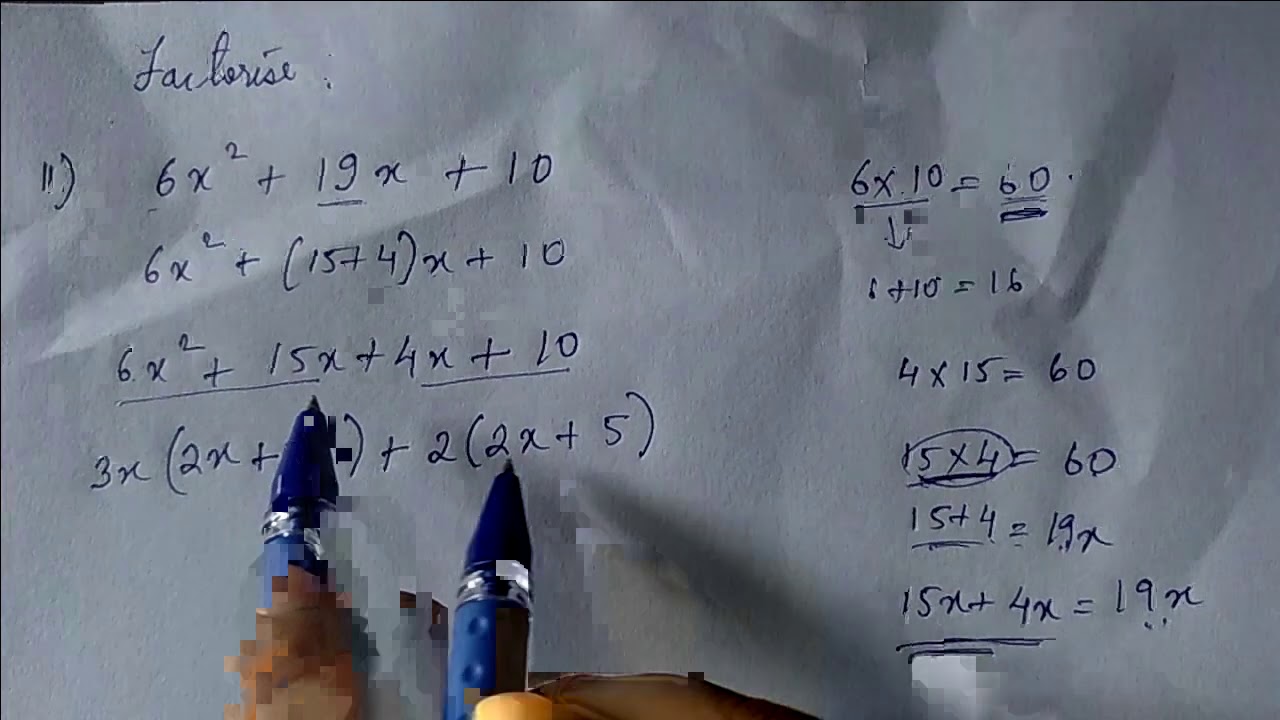 Factorise :
11) 6x² + 19x + 10
6x² + (15+4)x + 10
6x² + 15x + 4x + 10
3x (2x + ) + 2 (2x + 5)
6 × 10 = 60
6 + 10 = 16
4 × 15 = 60
15 × 4 = 60
15 + 4 = 19x
15x + 4x = 19x